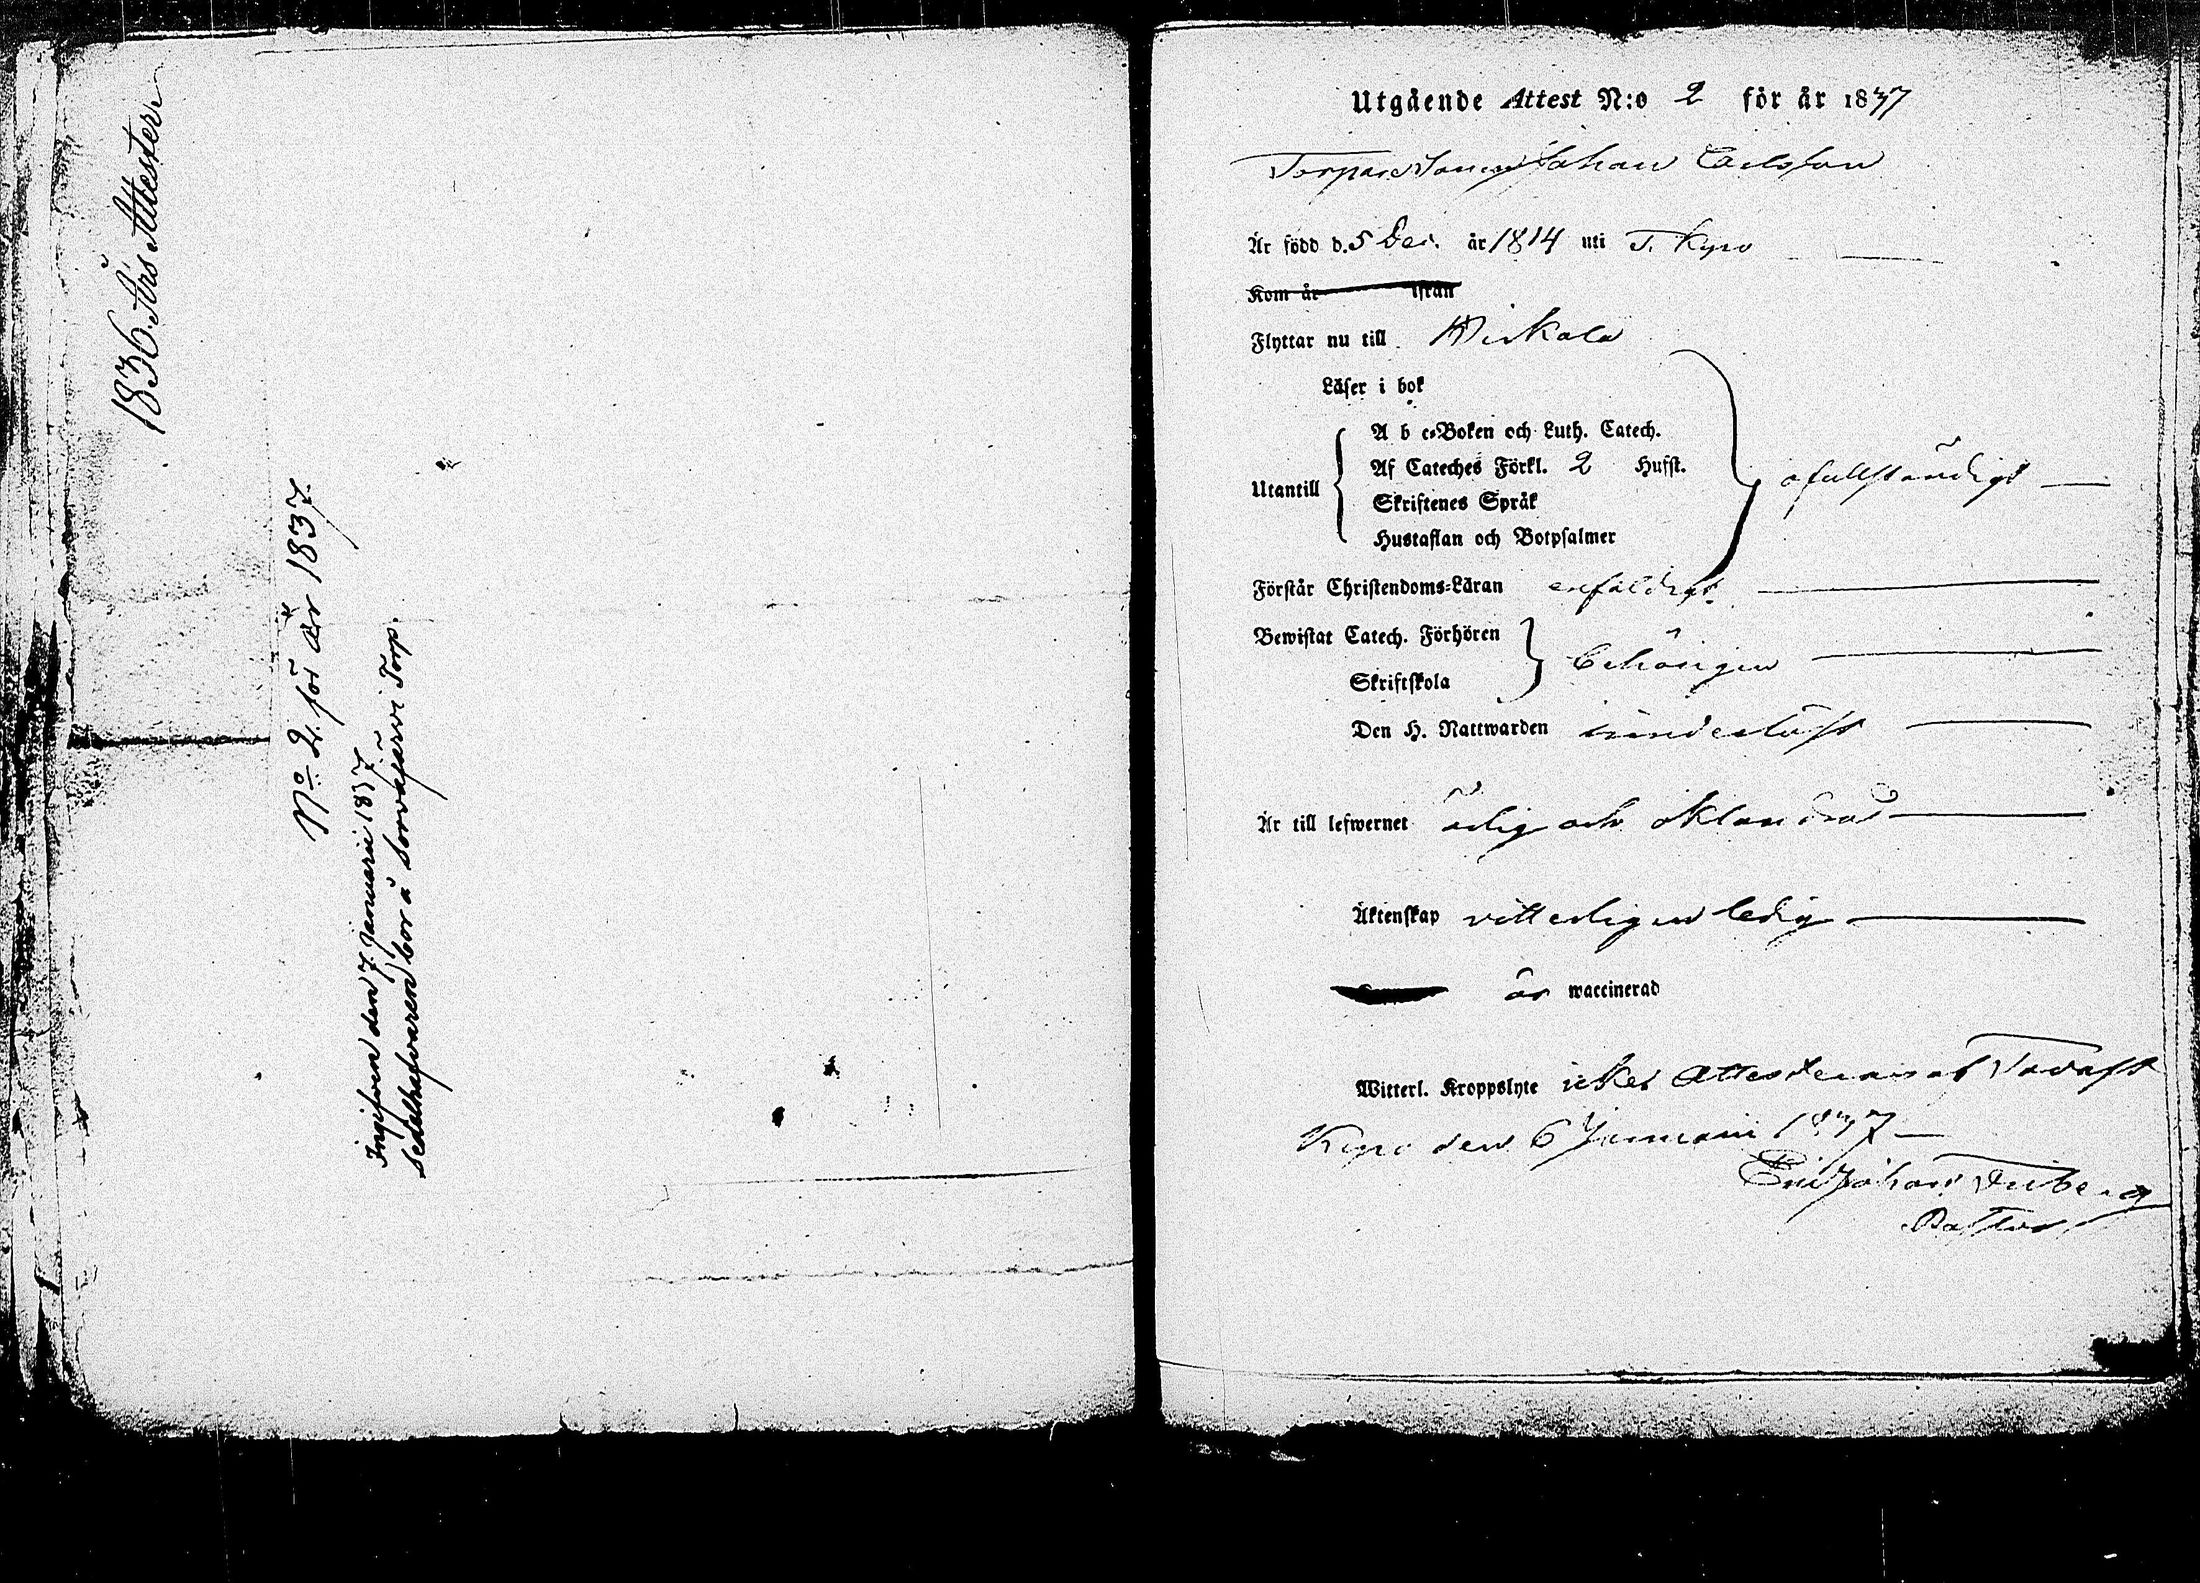 1836 Års Attester
No 2. för År 1837.
Ingifven den 7 Januarii 1837
Sedelhafvaren bor å Sorvajärvi Torp.
Utgående Attest N:o 2 för år 1837
Torpare Sonen Johan Carlsson
Är född d. 5 Dec. år 1814 uti T. Kyro
Kom år ifrån
Flyttar nu till Wirkala
Läser i bok
A b c-Boken och Luth. Catech.
Af Cateches Förkl. 2 Hufst.
Utantill
Skriftenes Språk
ofullständigt
Hustaflan och Botpsalmer
Förstår Christendoms-Läran enfaldigt
Bewistat Catech. Förhören
behörigen
Skriftskola
Den H. Nattwarden
Är till lefwernet ärlig och oklandrad
Äktenskap vitterligen ledig
är waccinerad
Witterl. Kroppslyte icke; Attesteras af Tavast
Kyro den 6 Januarii 1837
Johan
Pastor